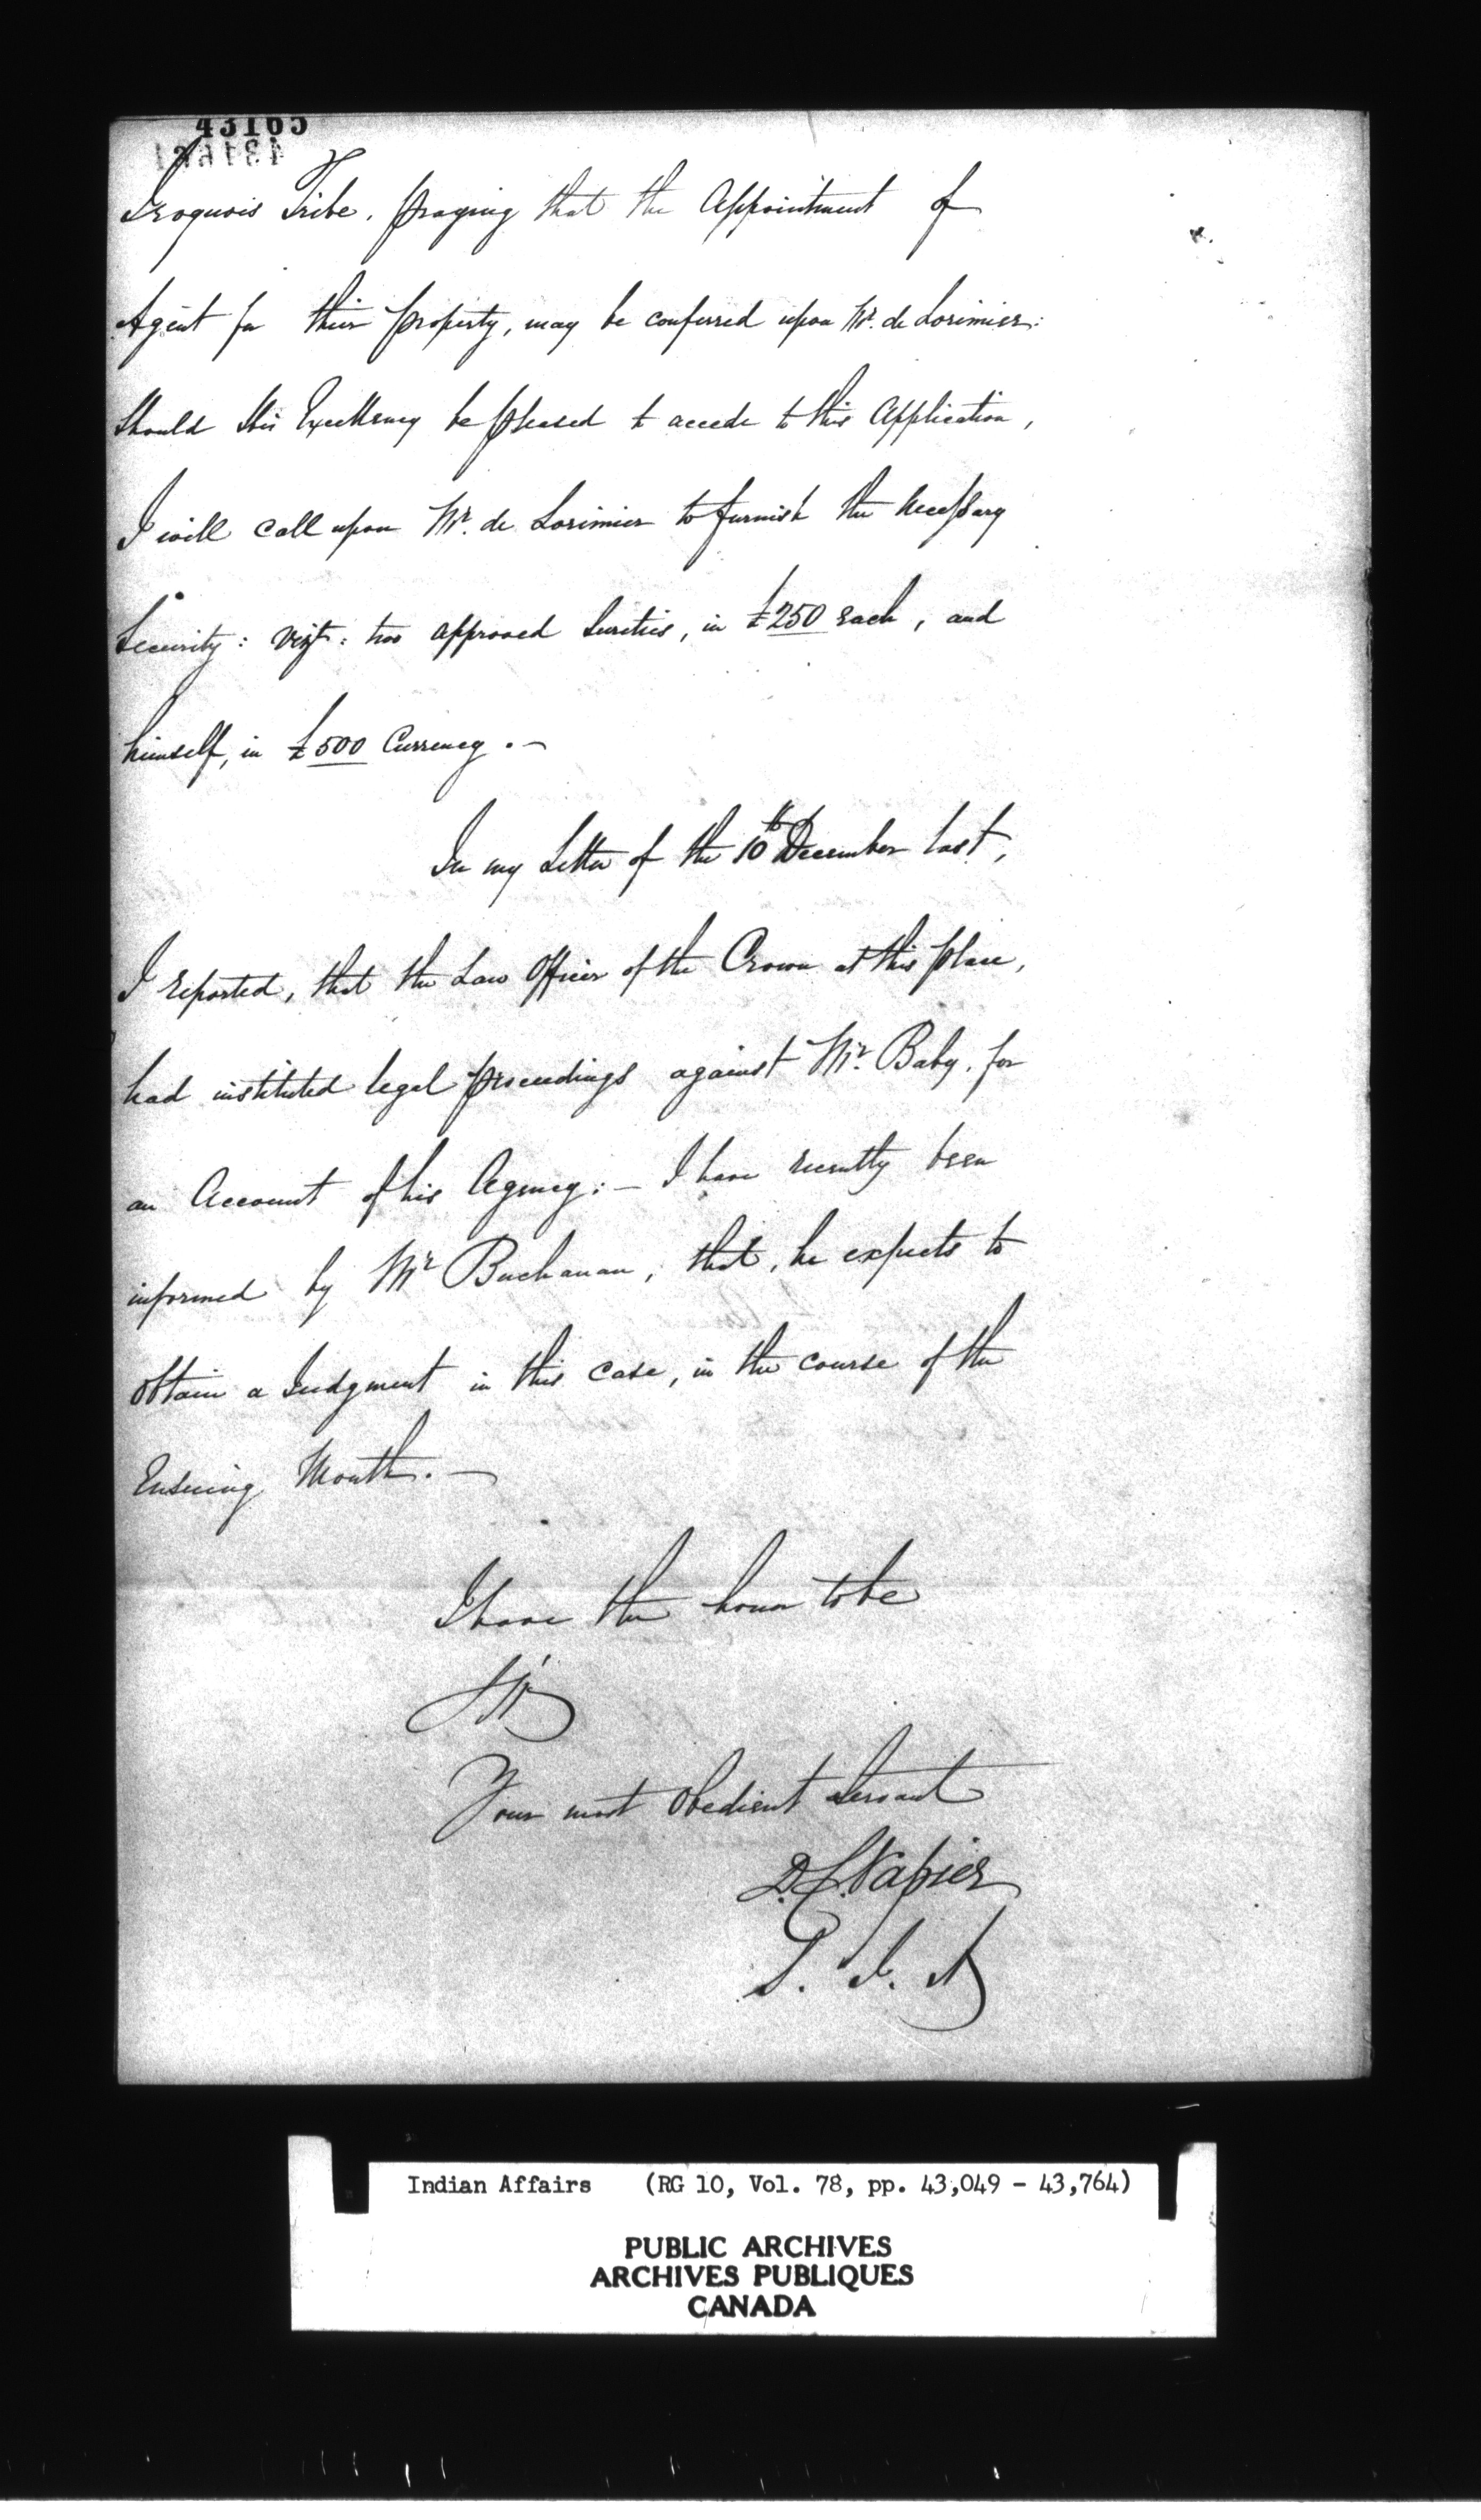 43165
Iroquois Tribe, praying that the Appointment of
Agent for their property, may be conferred upon Mr. de Lorimier:
Should His Excellency be pleased to accede to this Application,
I will call upon Mr. de Lorimier to furnish the necessary
Security: vizt: two approved Sureties, in £250 each, and
himself, in £500 Currency. —
In my Letter of the 10th December last,
I reported, that the Law Officer of the Crown at this place,
had instituted legal proceedings against Mr. Baby, for
an Account of his Agency: — I have recently been
informed by Mr Buchanan, that, he expects to
obtain a Judgment in this case, in the course of the
Ensuing Month. —
I have the honor to be
Sir
Your most obedient Servant
D.C. Napier
S. I. A
Indian Affairs (RG 10, Vol. 78, pp. 43,049 - 43,764)
PUBLIC ARCHIVES
ARCHIVES PUBLIQUES
CANADA